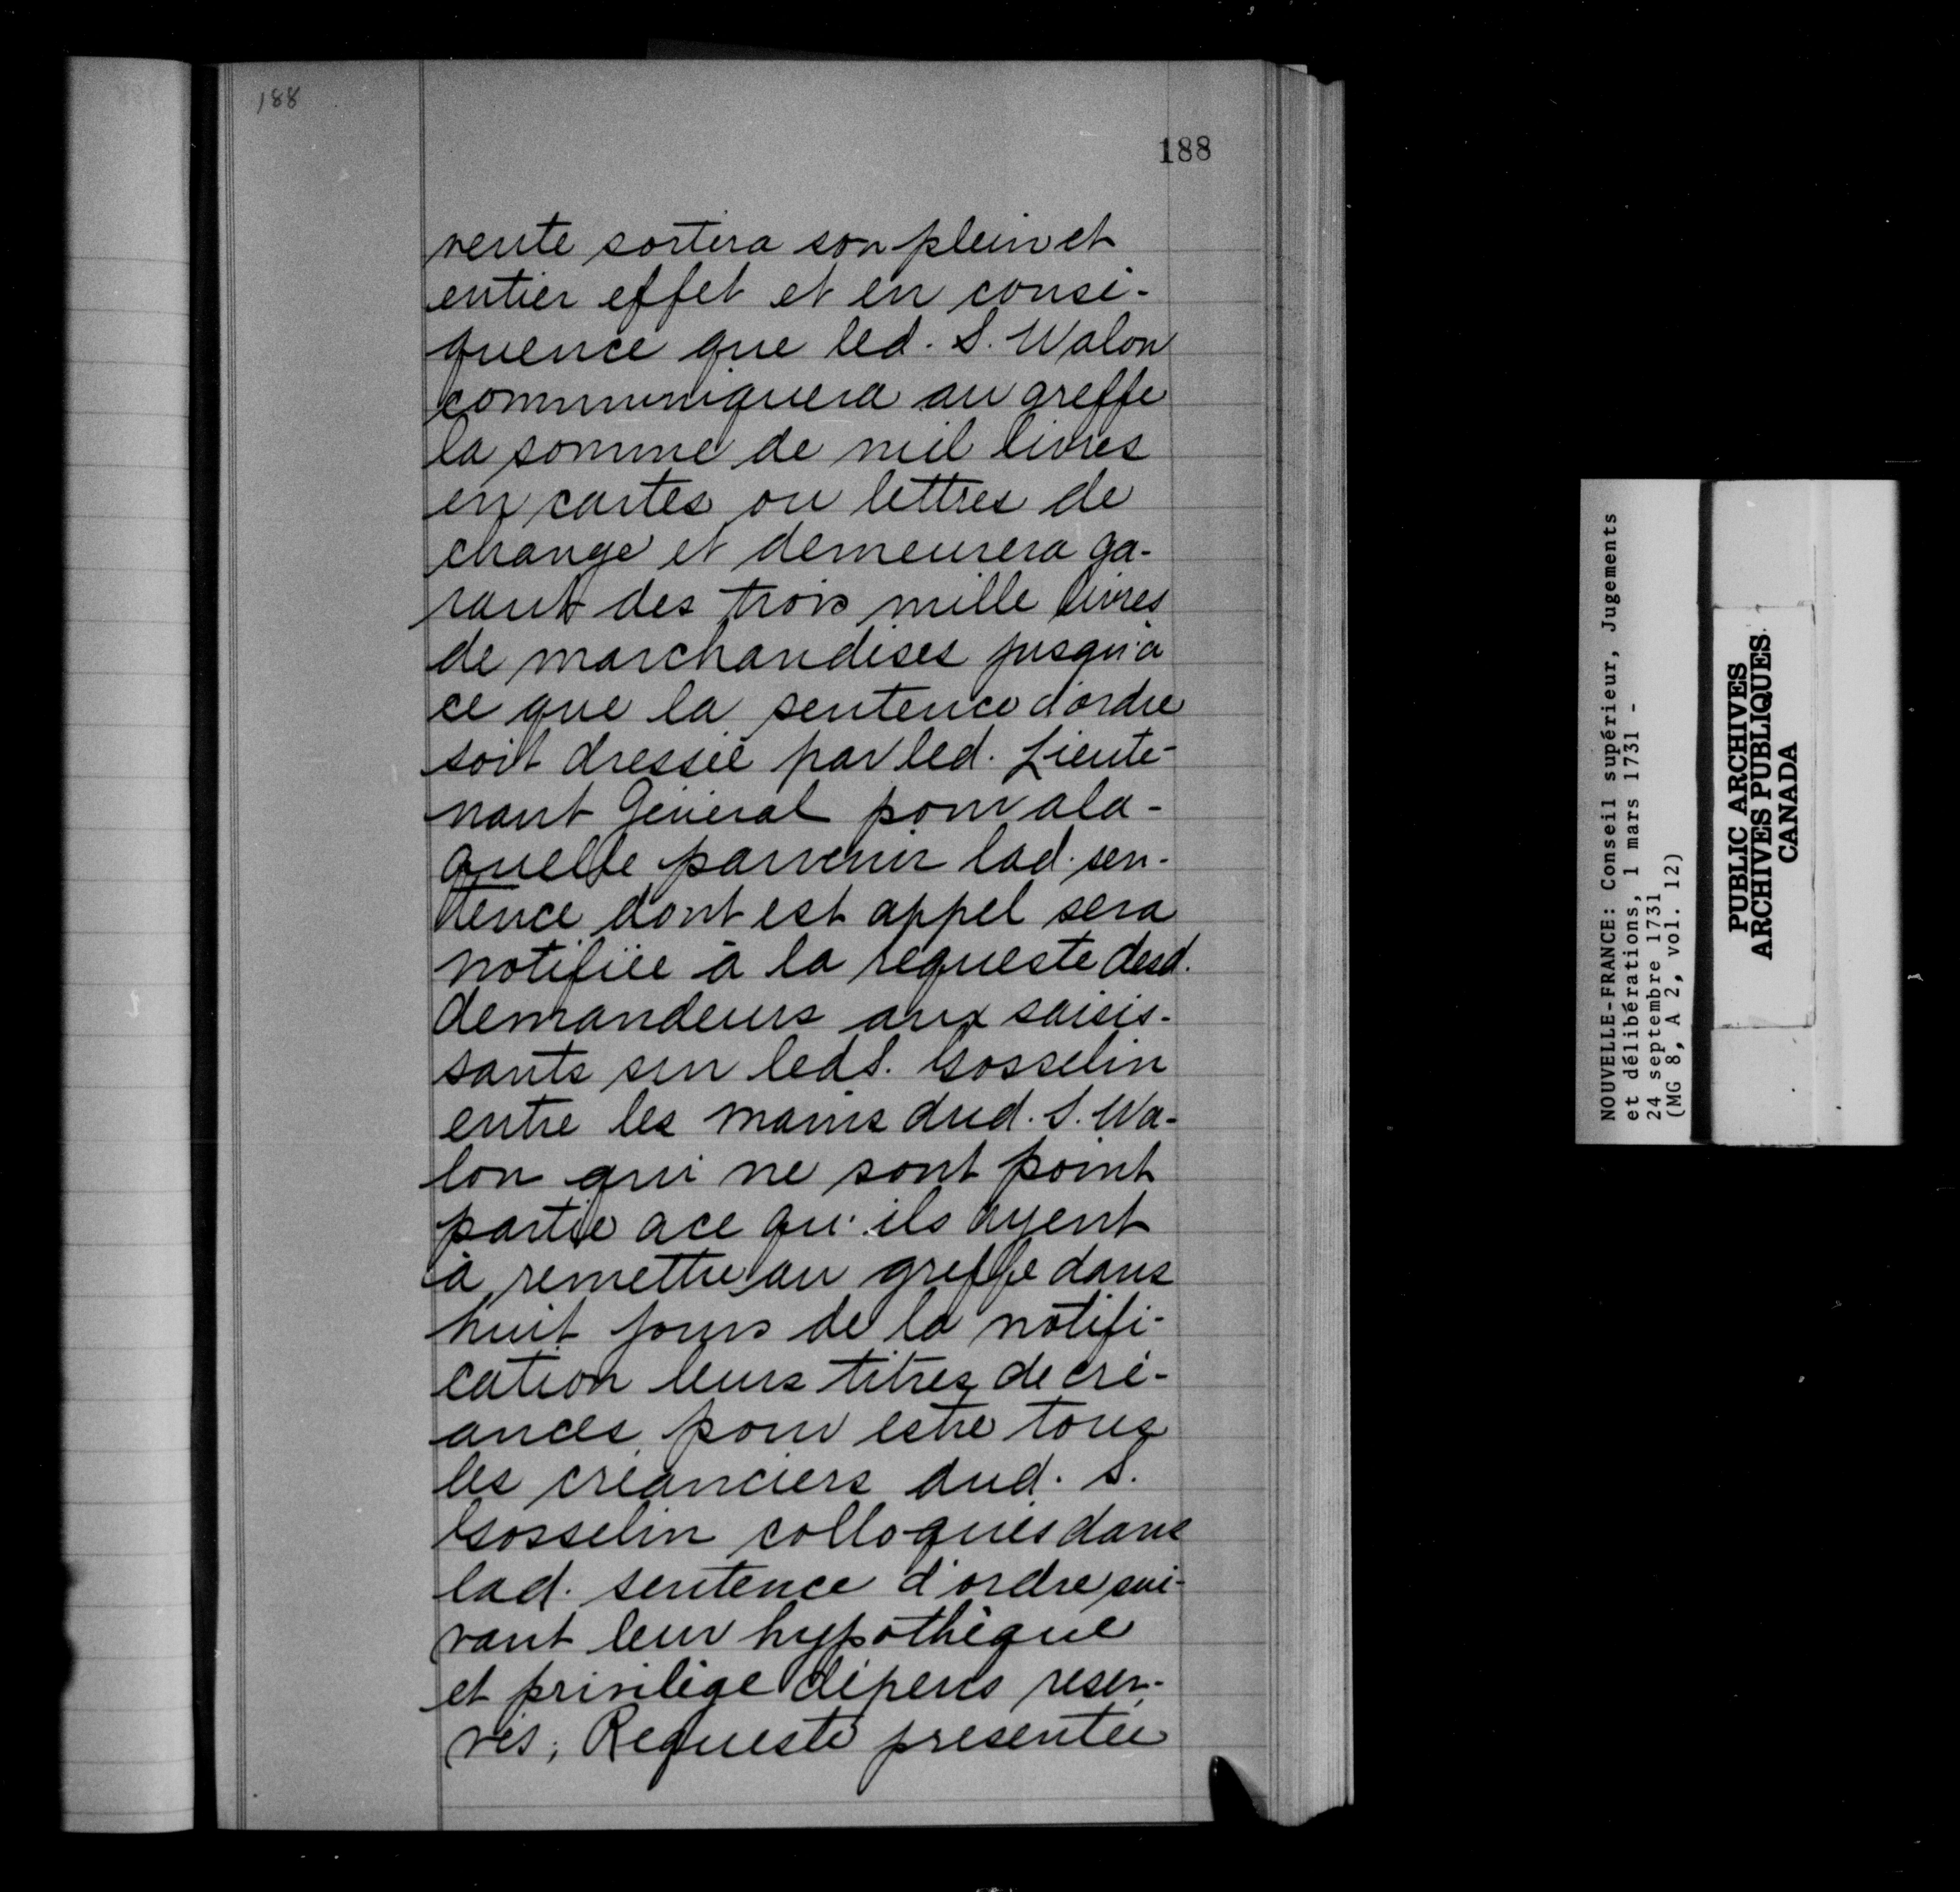 188
188
vente sortira son plein et
entier effet et en consé-
quence que led. S. Walon
communiquera au greffe
la somme de mil livres
en cartes ou lettres de
change et demeurera ga-
rant des trois mille livres
de marchandises jusqu'à
ce que la sentence d'ordre
soit dressée par led. Lieute-
nant Général pour a la-
quelle parvenir lad. sen-
tence dont est appel sera
notifiée à la requeste desd.
demandeurs aux saisis-
sants sur led S. Gosselin
entre les mains dud. S. Wa-
lon qui ne sont point
partie a ce qu'ils ayent
à remettre au greffe dans
huit jours de la notifi-
cation leurs titres de cré-
ances pour estre tous
les créanciers dud. S.
Gosselin colloqués dans
lad. sentence d'ordre sui-
vant leur hypothèque
et privilège dépens reser-
vés; Requeste présentée
NOUVELLE-FRANCE: Conseil supérieur, Jugements
et délibérations, 1 mars 1731 -
24 septembre 1731
(MG 8, A 2, vol. 12)
PUBLIC ARCHIVES
ARCHIVES PUBLIQUES
CANADA